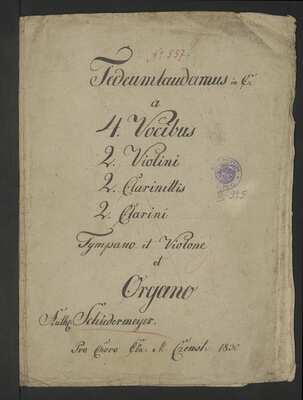 N° 557.
Tedeum laudamus in C.
a
4. Vocibus
2. Violini
2. Clarinettis
2. Clarini
Tympano et Violone
et
Organo
Auth: Schidermeyer.
Pro Choro Cl. M. Częnst. 1830